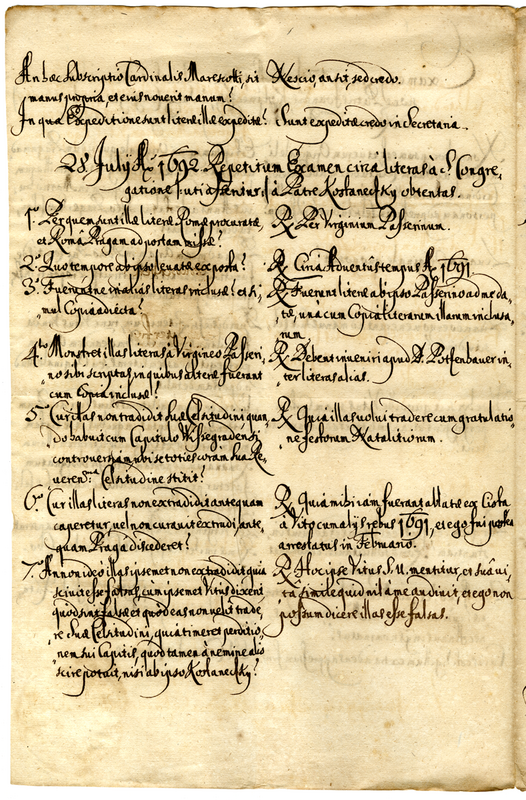 An hæc subscriptio Cardinalis Marescotti, sit
manus propria, et eius noverit manum?
Nescio, an sit, sed credo.
In qua Expeditione sunt literæ illæ expeditæ?
Sunt expeditæ credo in Secretaria.
28. July Aº 1692. Repetitum Examen circa literas à S. Congre,
gatione à Patre Koslanecsky obtentas.
1º Per quem sunt illæ literæ Romæ procuratæ,
et Româ Pragam ad portam missæ?
R. Per Virginium Passerinum.
2º Quo tempore ab ipso levatæ ex posta?
R. Circa Adventûs tempus Aº 1691
3º Fuerintne in aliis literas inclusæ? et si,
mul Copia adiecta?
R. Fuerunt literæ ab ipso Passerino ad me da,
tæ, una cum Copia literarum illarum inclusa,
rum
4to Monstret illas literas à Virgineo Passeri,
no sibi scriptas in quibus alteræ fuerant
cum Copia inclusæ?
R. Debent inveniri apud D. Potfenbauer in,
ter literas alias.
5º Cur illas non tradidit Suæ Celsitudini quan,
do habuit cum Capitulo Wissegradensi
controversiam ubi se toties coram Sua Re,
verendma Celsitudine stitit?
R. Quia illas volui tradere cum gratulatio,
ne festorum Natalitiorum.
6º Cur illas literas non extradidit antequam
caperetur, vel non curavit extrudi, ante,
quam Praga discederet?
R. Quia mihi iam fuerant ablatæ ex Cista
à Vito cum alijs rebus 1691, et ego fui postea
arrestatus in Februario.
7º An non ideo illas ipsemet non extradidit quia
scivit esse falsas, cum ipsemet Vitus dixerit
quod sint falsæ et quod eas non velit trade,
re Suæ Celsitudini, quia timeret perditio,
nem sui Capitis, quod tamen à nemine alio
scire potuit, nisi ab ipso Koslanecsky?
R. Hoc ipse Vitus S. V. mentitur, et suâ vi,
tâ simile quid nil à me audivit, et ego non
possum dicere illas esse falsas.